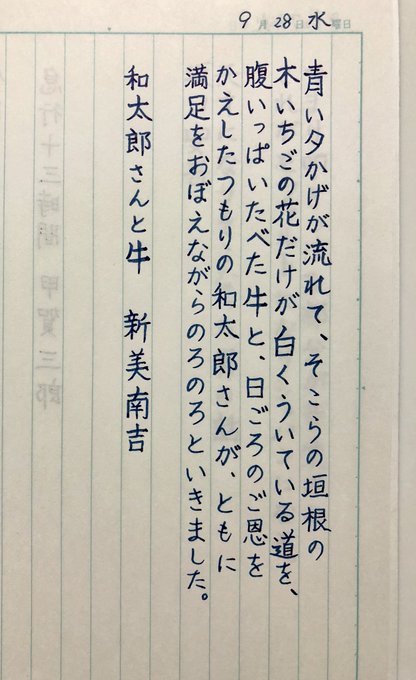 9月28日水曜日
青い夕かげが流れて、そこらの垣根の
木いちごの花だけが白くういている道を、
腹いっぱいたべた牛と、日ごろのご恩を
かえしたつもりの和太郎さんが、ともに
満足をおぼえながらのろのろといきました。
和太郎さんと牛　新美南吉
急行十三時間 甲賀三郎